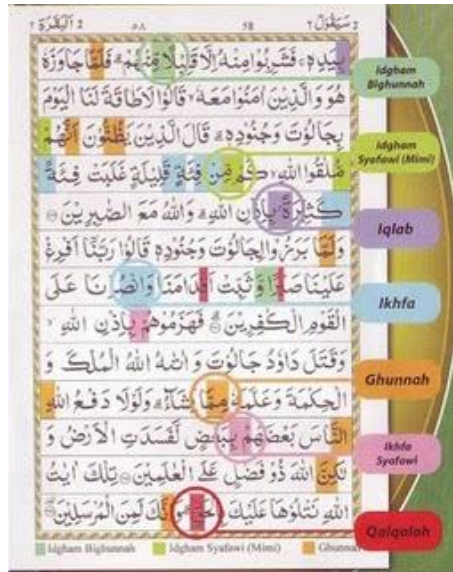 2 سَيَقُولُ ٢ 58 ٥٨ 2 اَلْبَقَرَة ٢
بِيَدِهٖۚ فَشَرِبُوْا مِنْهُ اِلَّا قَلِيْلًا مِّنْهُمْۗ فَلَمَّا جَاوَزَهٗ
هُوَ وَالَّذِيْنَ اٰمَنُوْا مَعَهٗۙ قَالُوْا لَا طَاقَةَ لَنَا الْيَوْمَ
بِجَالُوْتَ وَجُنُوْدِهٖۗ قَالَ الَّذِيْنَ يَظُنُّوْنَ اَنَّهُمْ
مُّلٰقُوا اللّٰهِۙ كَمْ مِّنْ فِئَةٍ قَلِيْلَةٍ غَلَبَتْ فِئَةً
كَثِيْرَةً ۢ بِاِذْنِ اللّٰهِۗ وَاللّٰهُ مَعَ الصّٰبِرِيْنَ
وَلَمَّا بَرَزُوْا لِجَالُوْتَ وَجُنُوْدِهٖ قَالُوْا رَبَّنَآ اَفْرِغْ
عَلَيْنَا صَبْرًا وَّثَبِّتْ اَقْدَامَنَا وَانْصُرْنَا عَلَى
الْقَوْمِ الْكٰفِرِيْنَۗ فَهَزَمُوْهُمْ بِاِذْنِ اللّٰهِۙ
وَقَتَلَ دَاوٗدُ جَالُوْتَ وَاٰتٰىهُ اللّٰهُ الْمُلْكَ وَ
الْحِكْمَةَ وَعَلَّمَهٗ مِمَّا يَشَاۤءُۗ وَلَوْلَا دَفْعُ اللّٰهِ
النَّاسَ بَعْضَهُمْ بِبَعْضٍ لَّفَسَدَتِ الْاَرْضُ وَ
لٰكِنَّ اللّٰهَ ذُوْ فَضْلٍ عَلَى الْعٰلَمِيْنَ تِلْكَ اٰيٰتُ
اللّٰهِ نَتْلُوْهَا عَلَيْكَ بِالْحَقِّۗ وَاِنَّكَ لَمِنَ الْمُرْسَلِيْنَ
Idgham Bighunnah Idgham Syafawi (Mimi) Ghunnah
Idgham
Bighunnah
Idgham
Syafawi (Mimi)
Iqlab
Ikhfa
Ghunnah
Ikhfa
Syafawi
Qalqalah